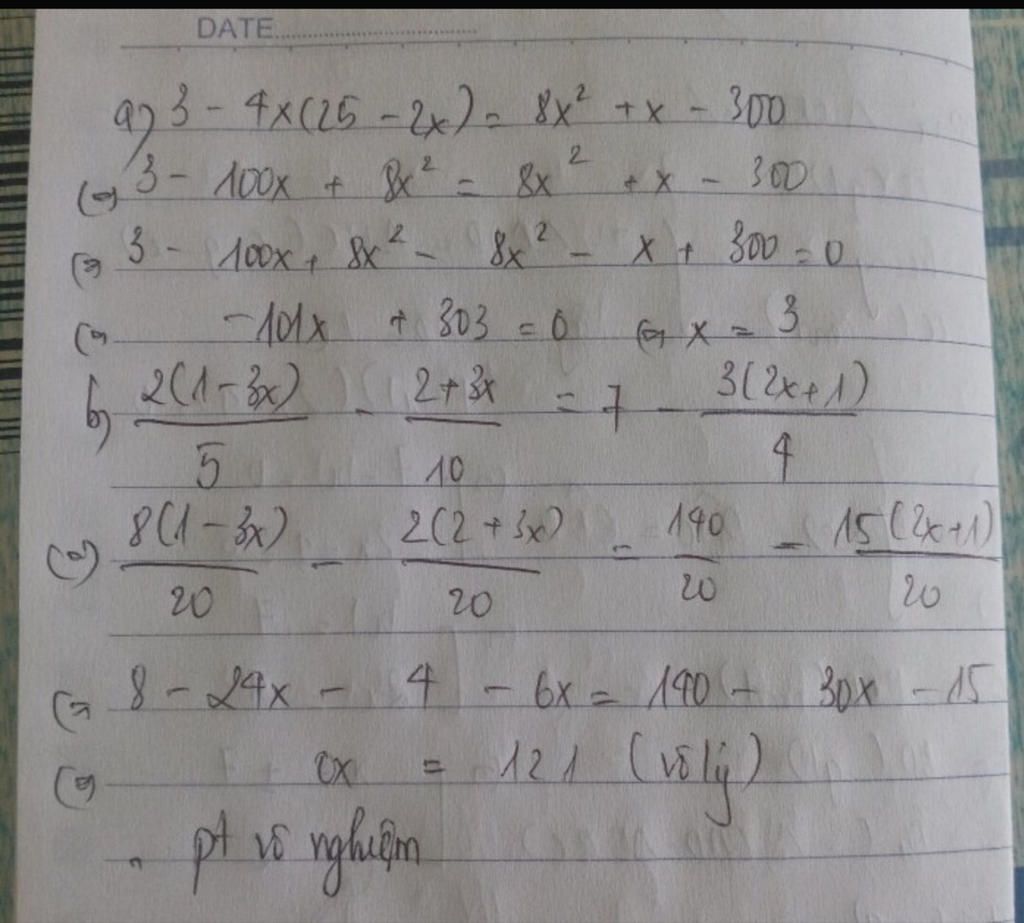 DATE
a) 3 - 4x(25 - 2x) = 8x² + x - 300
(=) 3 - 100x + 8x² = 8x² + x - 300
(=) 3 - 100x + 8x² - 8x² - x + 300 = 0
(=) -101x + 303 = 0 (=) x = 3
b) 2(1-3x)/5 - 2+3x/10 = 7 - 3(2x+1)/4
(=) 8(1-3x)/20 - 2(2+3x)/20 = 140/20 - 15(2x+1)/20
(=) 8 - 24x - 4 - 6x = 140 - 30x - 15
(=) 0x = 121 (vô lý)
pt vô nghiệm